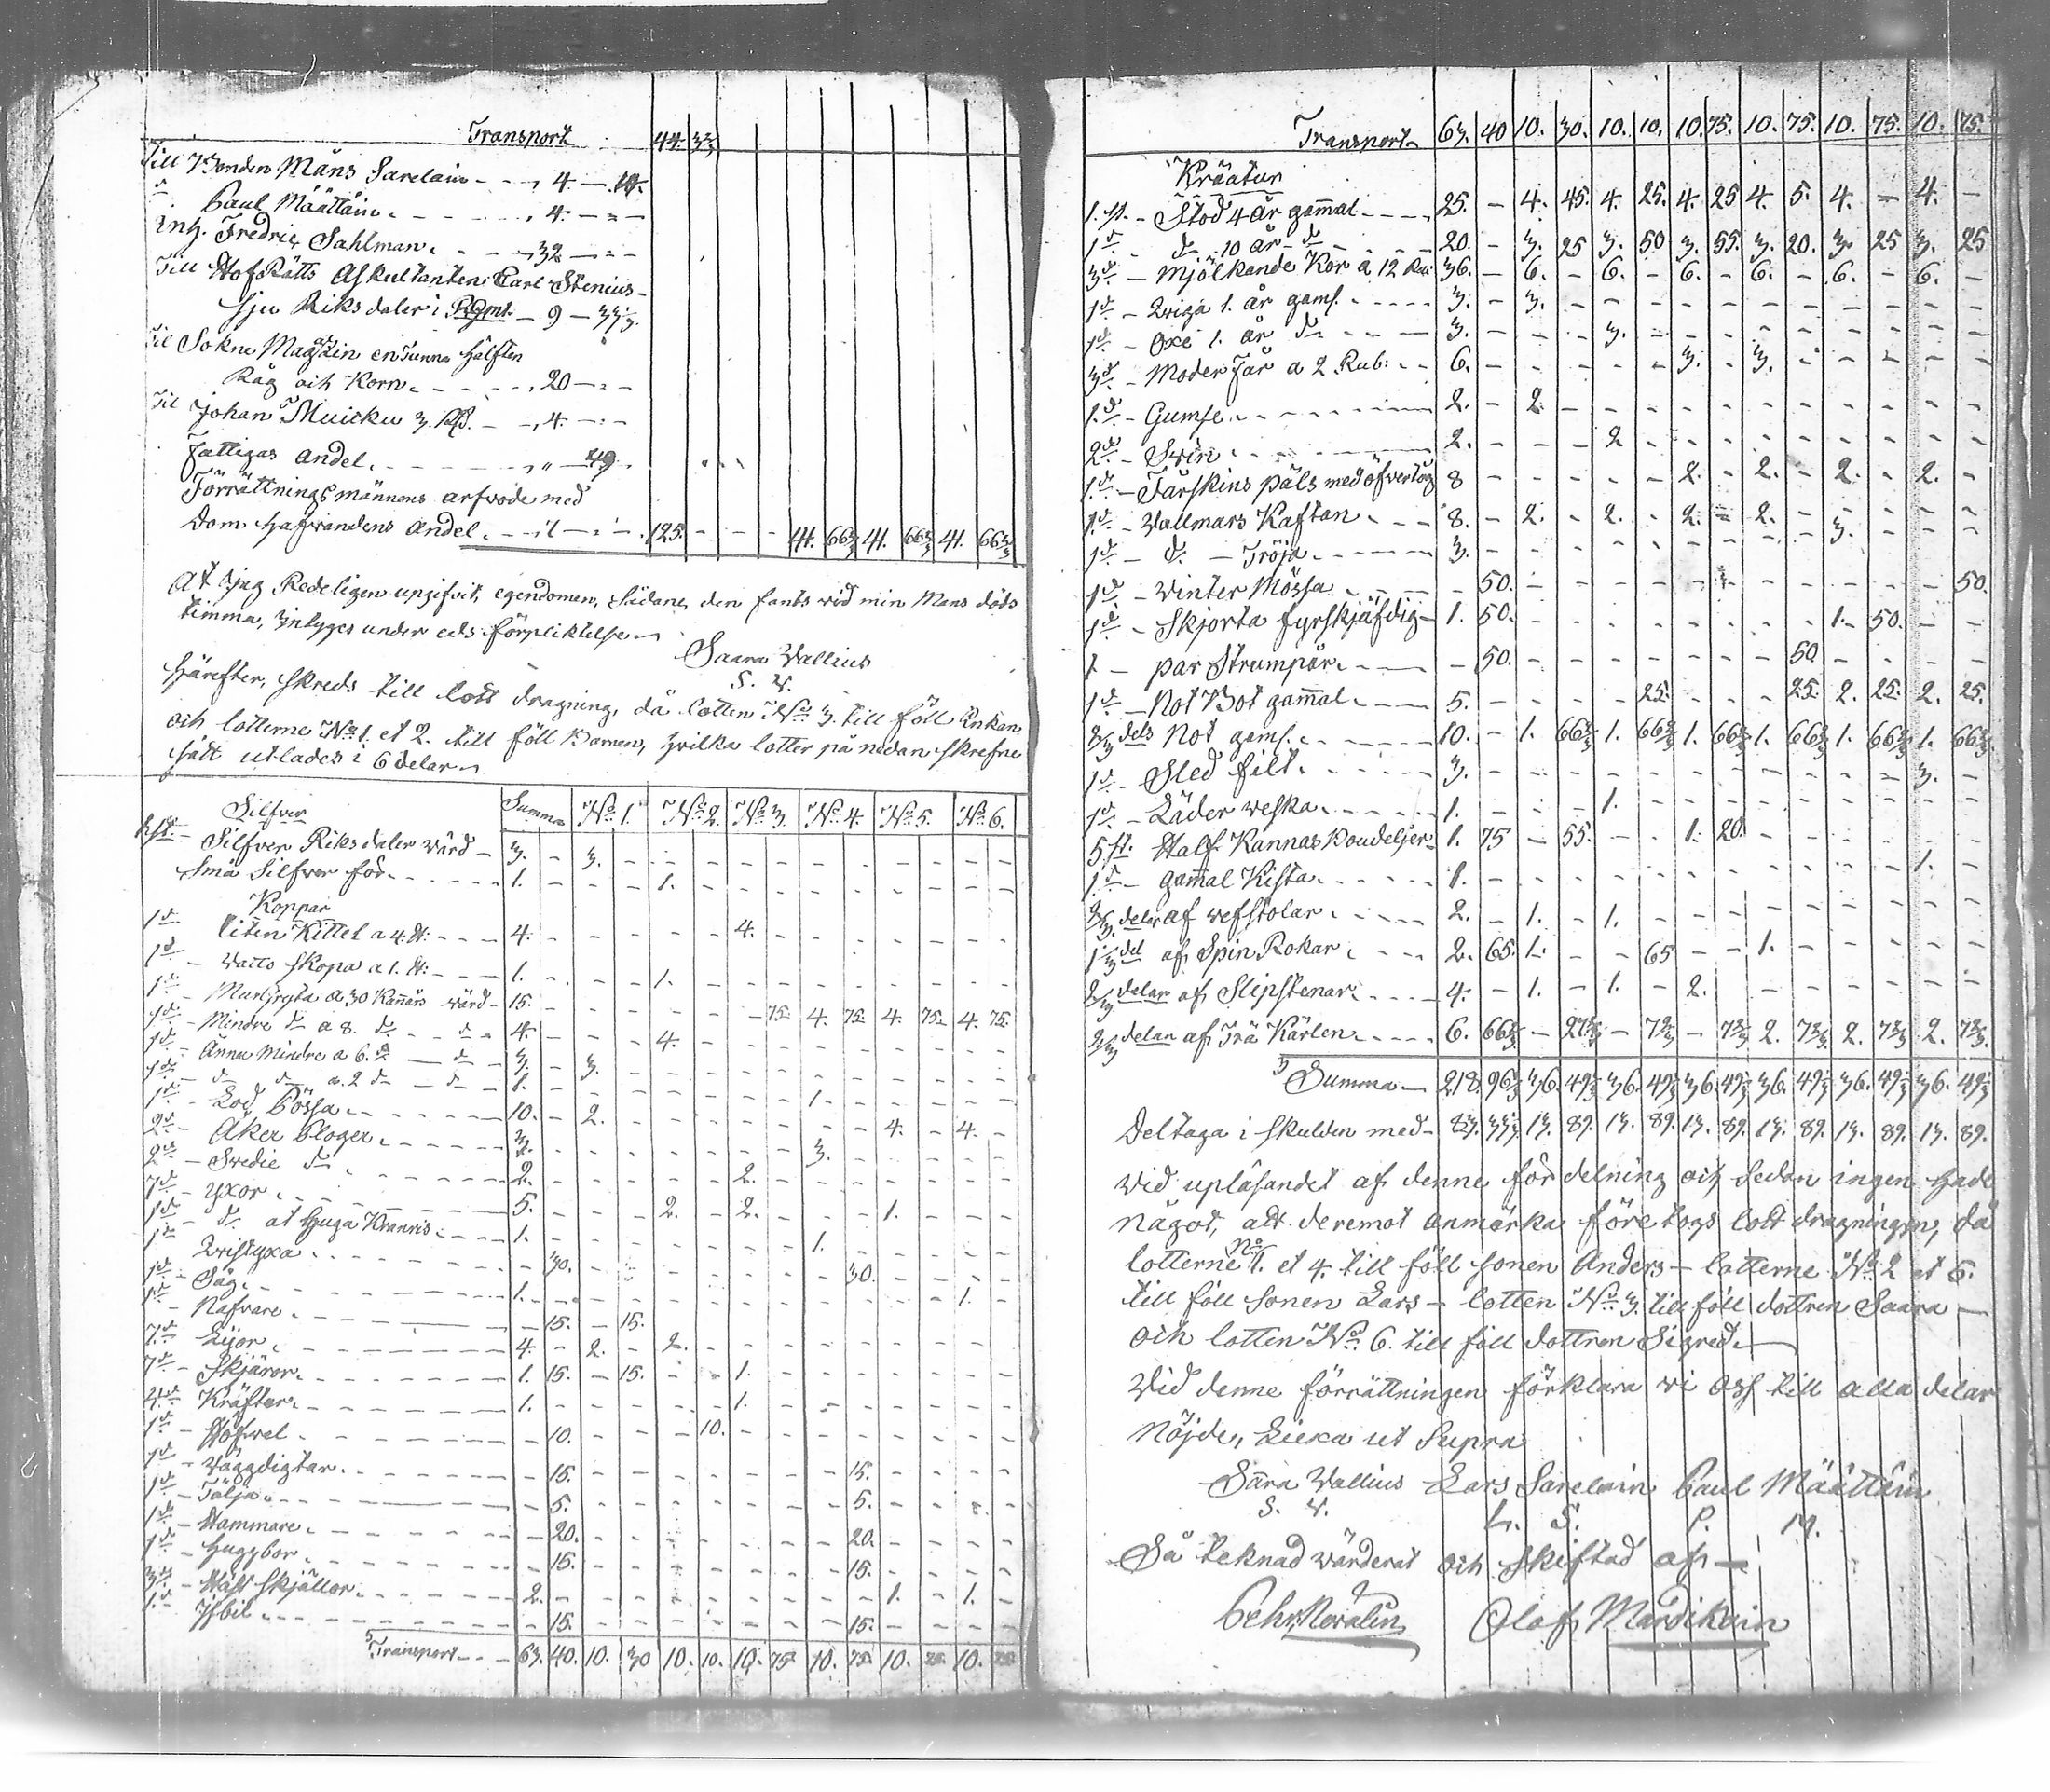 Transport 44. 33
Till Bonden Måns Sarelain - - - 4. - 14.
d:o Paul Määttäin. - - - - 4. - " -
Inh. Fredric Sahlman. - - - 32 - " -
Till HofRätts Askultanten Carl Stenius -
sju Riksdaler i - 9 - 33⅓.
Til Sokne Magazin en Tunna hälften
Råg och Korn. - - - - 20 - " -
Til Johan Muicku 3. - - 4. - " -
Fattigas andel. - - - - " - 49.
Förrättningsmännens arfvode med
Dom hafvandens andel. - 125. - - - 41. 66⅔ 41. 66⅔ 41. 66⅔
At jag Redeligen upgifvit, egendomen, sådane, den fants vid min Mans döds
timma, intyges under eds förpliktelse.
Saara Wallius
S. W.
Härefter, skreds till lott dragning, då lotten N:o 3. till föll Enkan
och lotterne N:o 1. et 2. till föll Barnen, hvilka lotter på nedan skrefne
sätt utlades i 6 delar.
Silfver Summa N:o 1. N:o 2. N:o 3. N:o 4. N:o 5. N:o 6.
Silfver Riksdaler wärd - 3. - 3. - - -
Små Silfver för - - - 1. - - - 1. - -
Koppar
1 d:o liten Kittel a 4. - - - 4. - - - - - 4. -
1 d:o - Watto skopa a 1. - - - 1. - - - 1. - -
1 d:o - Murgryta a 30 Kannars wärd - 15. - - - - - - 75. 4. 75. 4. 75. 4. 75.
1 d:o - Mindre d:o a 8. d:o - d:o - 4. - - - 4. - -
1 d:o - Änna Mindre a 6. d:o - d:o - 3. - 3. - -
1 d:o - d:o d:o a. 2 d:o - d:o - 1. - - - - - - - 1. -
1 d:o - Lod Bössa. - - - 10. - 2. - - - - - - - 4. - 4. -
2 d:o - Åker Ploger. - - - 3. - - - - - - - 3. -
2 d:o - Svedie d:o - - - 2. - - - - - 2. -
7 d:o - Yxor. - - - 5. - - - 2. - 2. - - - 1. -
1 d:o - d:o at huga - - - 1. - - - - - - - 1. -
1 d:o - - - - - 30. - - - - - - - 30. -
1 d:o - Såg. - - - 1. - - - - - - - - - - - 1. -
1 d:o - Nafvare. - - - - 15. - 15. -
7 d:o - Lijor. - - - 4. - 2. - 2. -
7 d:o - Skjäror. - - - 1. 15. - 15. - - 1. -
4 d:o Kräftor. - - - 1. - - - - - 1. -
1 d:o - Höfvel - - - - 10. - - - 10. -
1 d:o - Waggdigtar. - - - - 15. - - - - - - - 15. -
1 d:o - Tälja. - - - - 5. - - - - - - - 5. -
1 d:o - Hammare. - - - - 20. - - - - - - - 20. -
1 d:o - Huggbor. - - - - 15. - - - - - - - 15. -
3 d:o - Häst skjällor. - - - 2. - - - - - - - - - 1. - 1. -
1. d:o Isbil. - - - - 15. - - - - - - - 15. -
Transport - - 63. 40. 10. 30 10. 10. 10. 75. 10. 75. 10. 75. 10. 75.
Transport - 63. 40 10. 30. 10. 10. 10. 75. 10. 75. 10. 75. 10. 75.
Kräatur
1. st. - Stod 4 år gam̄al - - - 25. - 4. 45. 4. 25. 4. 25 4. 5. 4. - 4. -
1 d:o - d:o 10 år - d:o - - - 20. - 3. 25 3. 50 3. 55. 3. 20. 3. 25 3. 25
3 d:o - Mjölkande Kor a 12 Rub: 36. - 6. - 6. - 6. - 6. - 6. - 6. -
1 d:o - Qviga 1. år gaml. - - - 3. - 3. - -
1 d:o - Oxe 1. år d:o - - - 3. - - - 3. - -
3 d:o - Moder Får a 2 Rub: - - 6. - - - - - 3. - 3. - -
1. d:o - Gumse. - - - 2. - 2. - -
2 d:o - Swin. - - - 2. - - - 2 - -
1. d:o - Fårskins päls med öfvertåg 8 - - - - - 2. - 2. - 2. - 2. -
1 d:o - Wallmars Kaftan. - - - 8. - 2. - 2. - 2. - 2. - -
1 d:o - d:o - Tröja - - - 3. - - - - - - - - - 3. - - -
1 d:o - Winter Mössa - - - - 50. - - - - - - - - - - - 50.
1 d:o - Skjorta fyrskjäfdig - 1. 50. - - - - - - - - 1. 50. - -
1 - par Strumpor. - - - - 50. - - - - - - - 50. - - - -
1 d:o - Not Bot gam̄al - - - 5. - - - - 25. - - - 25. 2. 25. 2. 25.
⅔ dels Not gaml. - - - 10. - 1. 66⅔ 1. 66⅔ 1. 66⅔ 1. 66⅔ 1. 66⅔ 1. 66⅔
1 d:o - Sled filt. - - - 3. - - - - - - - - - - - 3. -
1 d:o - Läder weska. - - - 1. - - - 1. - -
5. st. Half Kannas Boudeljer - 1. 75 - 55. - - 1. 20. - -
1 d:o - gam̄al Kista. - - - 1. - - - - - - - - - - - 1. -
⅔ delar af wefstolar. - - - 2. - 1. - 1. - -
1⅓ del af Spin Rokar. - - - 2. 65. 1. - - 65 - - 1. - -
⅔ delar af Slipstenar. - - - 4. - 1. - 1. - 2. - -
⅔ delar af Trä Kärlen. - - - 6. 66⅔ - 27⅔ - 7⅔ - 7⅔ 2. 7⅔ 2. 7⅔ 2. 7⅔
Summa - 218. 96⅔ 36. 49⅓ 36. 49⅓ 36. 49⅓ 36. 49⅓ 36. 49⅓ 36. 49⅓
Deltaga i skulden med - 83. 33⅓ 13. 89. 13. 89. 13. 89. 13. 89. 13. 89. 13. 89.
Wid upläsandet af denne fördelning och sedan ingen hade
något, att deremot anmärka företogs lottdragningen, då
lotterne N:o 1. et 4. till föll sonen Anders - lotterne N:o 2 et 5.
till föll sonen Lars - lotten N:o 3. till föll dottren Saara -
och lotten N:o 6. till föll dottren Sigred. -
Wid denne förrättningen förklara wi oss till alla delar
Nöjde, Lieka ut Supra
Sara Wallius Lars Sarelain Paul Määttäin
S. W. L. S. P. M.
Så teknad wärderat och skiftad af -
Pehr Olof Mardikain